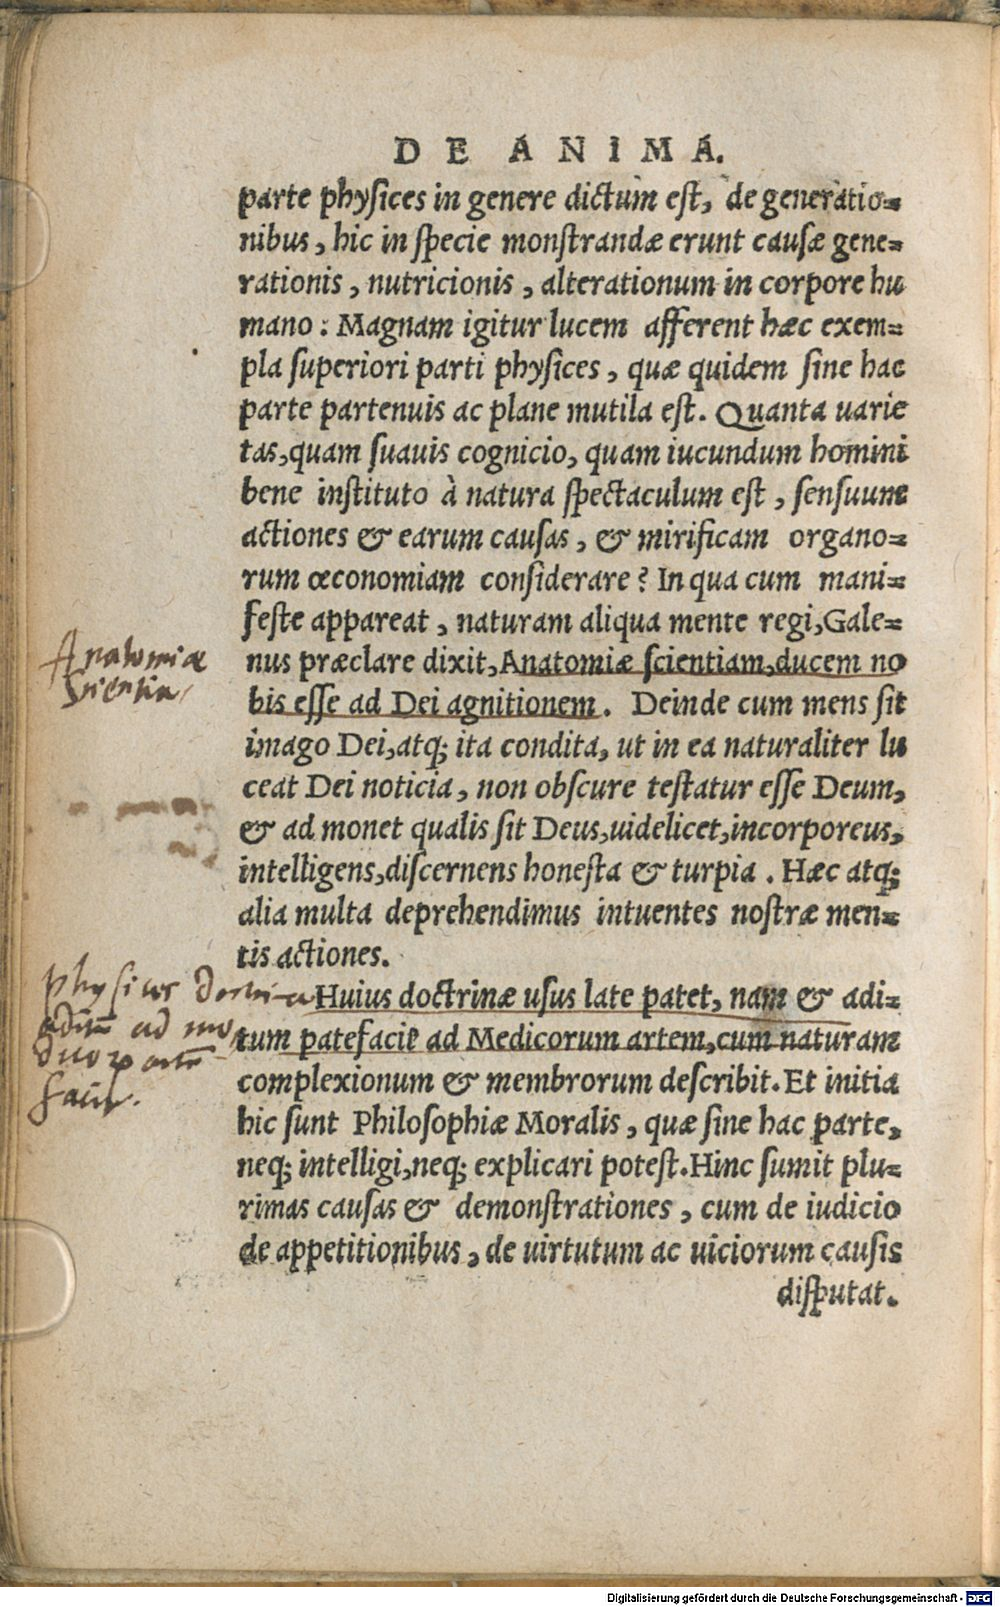 DE ANIMA.
parte physices in genere dictum est, de generatio-
nibus, hic in specie monstrandæ erunt causæ gene-
rationis, nutricionis, alterationum in corpore hu
mano: Magnam igitur lucem afferent hæc exem-
pla superiori parti physices, quæ quidem sine hac
parte partenuis ac plane mutila est. Quanta uarie
tas, quam suauis cognicio, quam iucundum homini
bene instituto à natura spectaculum est, sensuum
actiones & earum causas, & mirificam organo-
rum œconomiam considerare? In qua cum mani-
feste appareat, naturam aliqua mente regi, Gale-
nus præclare dixit, Anatomiæ scientiam, ducem no
bis esse ad Dei agnitionem. Deinde cum mens sit
imago Dei, atq; ita condita, ut in ea naturaliter lu
ceat Dei noticia, non obscure testatur esse Deum,
& ad monet qualis sit Deus, uidelicet, incorporeus,
intelligens, discernens honesta & turpia. Hæc atq;
alia multa deprehendimus intuentes nostræ men-
tis actiones.
Huius doctrinæ usus late patet, nam & adi-
tum patefacit ad Medicorum artem, cum naturam
complexionum & membrorum describit. Et initia
hic sunt Philosophiæ Moralis, quæ sine hac parte,
neq; intelligi, neq; explicari potest. Hinc sumit plu-
rimas causas & demonstrationes, cum de iudicio
de appetitionibus, de uirtutum ac uiciorum causis
disputat.
Anatomiæ
Scientia
physices
ad
facit.
Digitalisierung gefördert durch die Deutsche Forschungsgemeinschaft - DFG